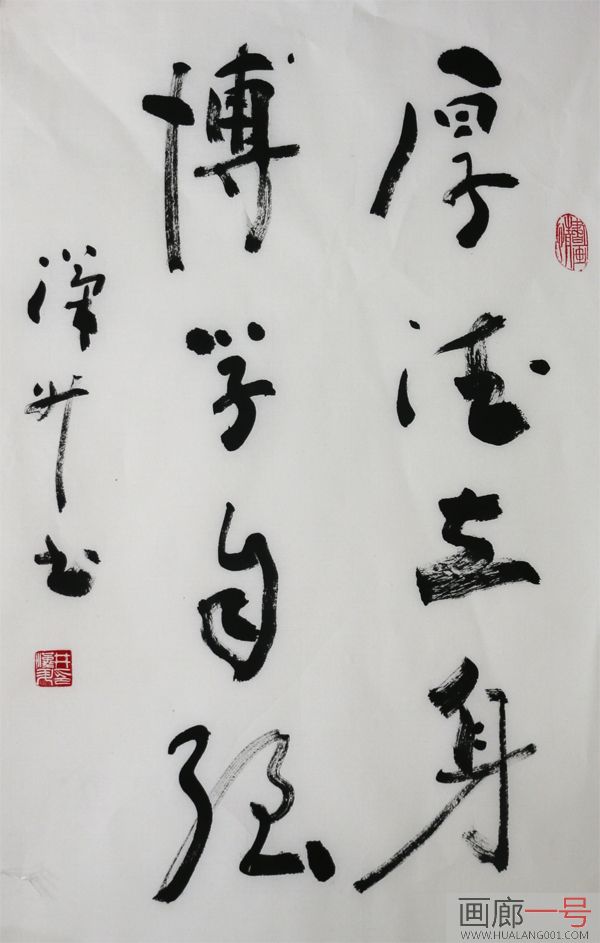 厚德立身
博学自强
书
画廊一号
WWW.HUALANG001.COM